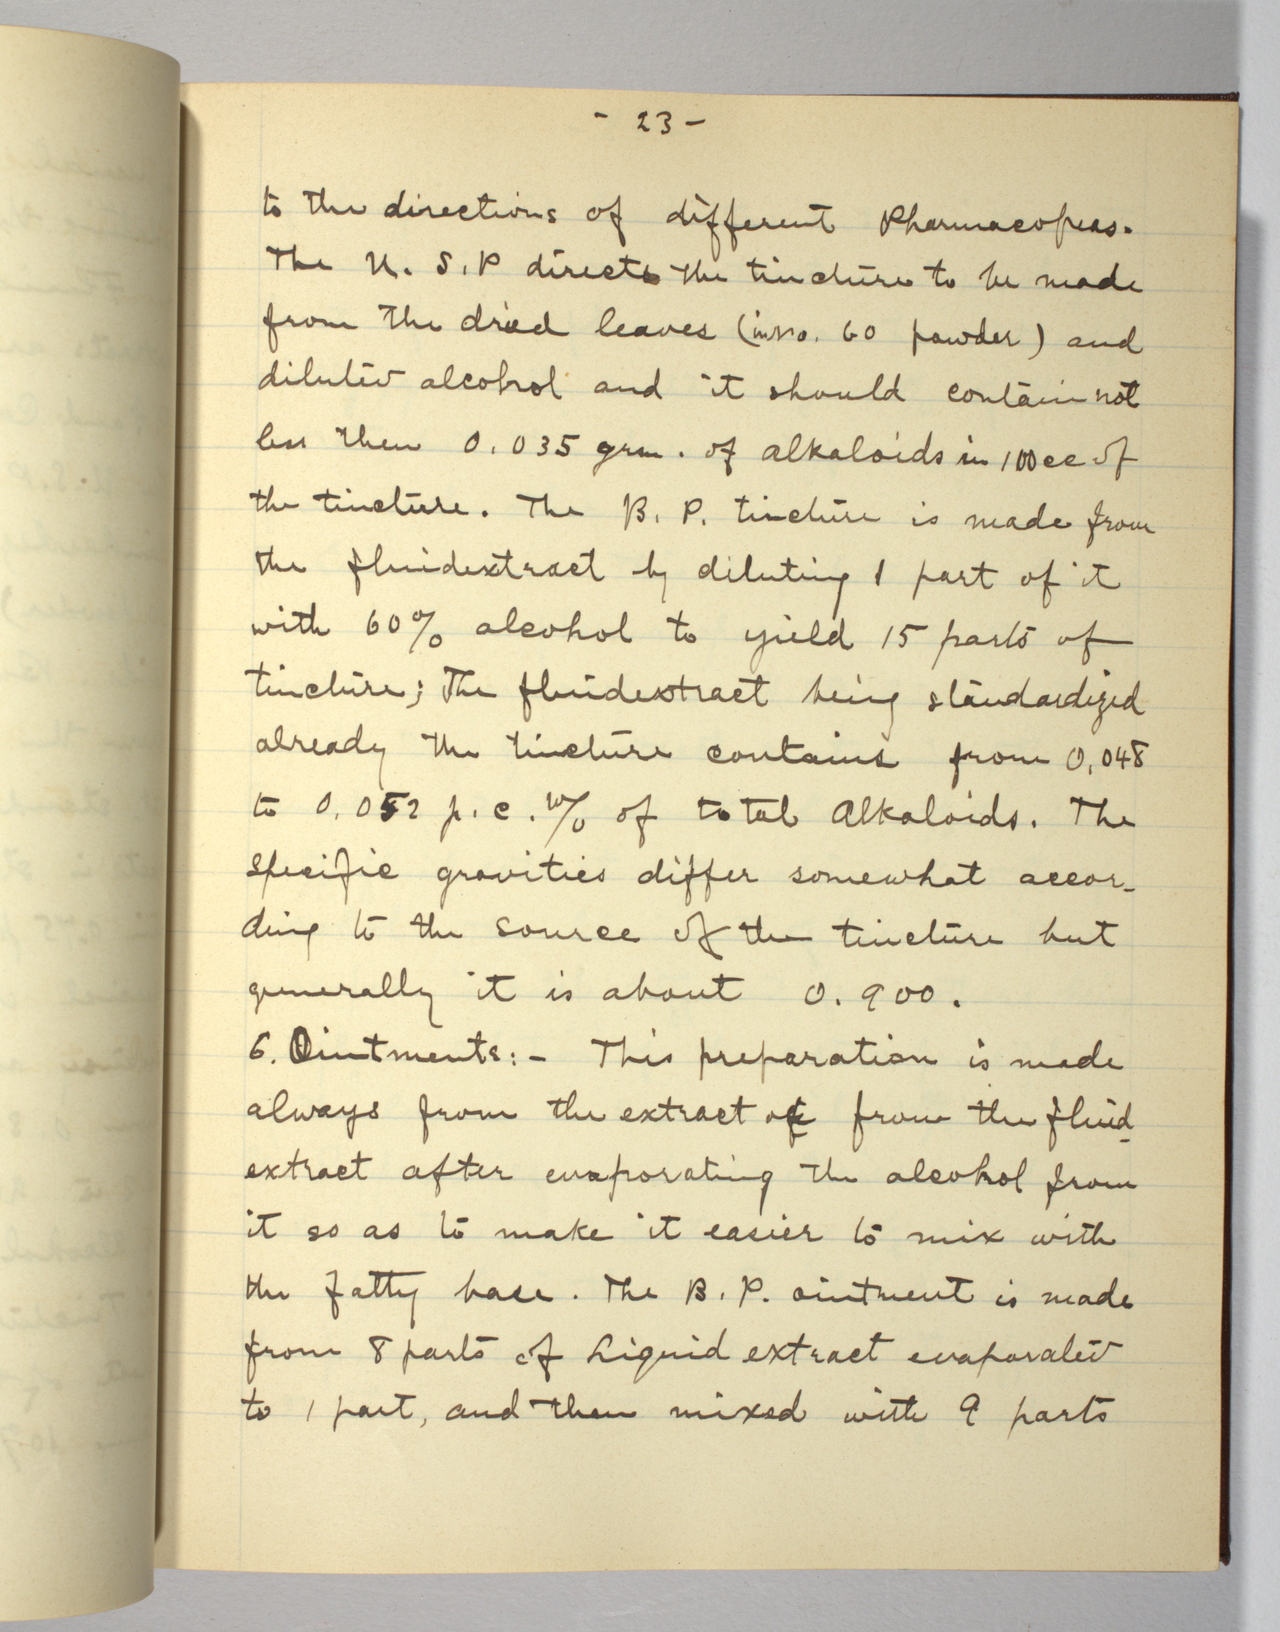 - 23 -
to the directions of different Pharmacopeas.
The U. S. P directs the tincture to be made
from the dried leaves (in No. 60 powder) and
diluted alcohol and it should contain not
less then 0.035 grm. of alkaloids in 100 cc of
the tincture. The B. P. tincture is made from
the fluidextract by diluting 1 part of it
with 60% alcohol to yield 15 parts of
tincture; The fluidextract being standardized
already the tincture contains from 0.048
to 0.052 p. c. w/o of total Alkaloids. The
specific gravities differ somewhat accor-
ding to the source of the tincture but
generally it is about 0.900.
6. Ointments:- This preparation is made
always from the extract or from the fluid-
extract after evaporating the alcohol from
it so as to make it easier to mix with
the fatty base. The B. P. ointment is made
from 8 parts of Liquid extract evaporated
to 1 part, and then mixed with 9 parts